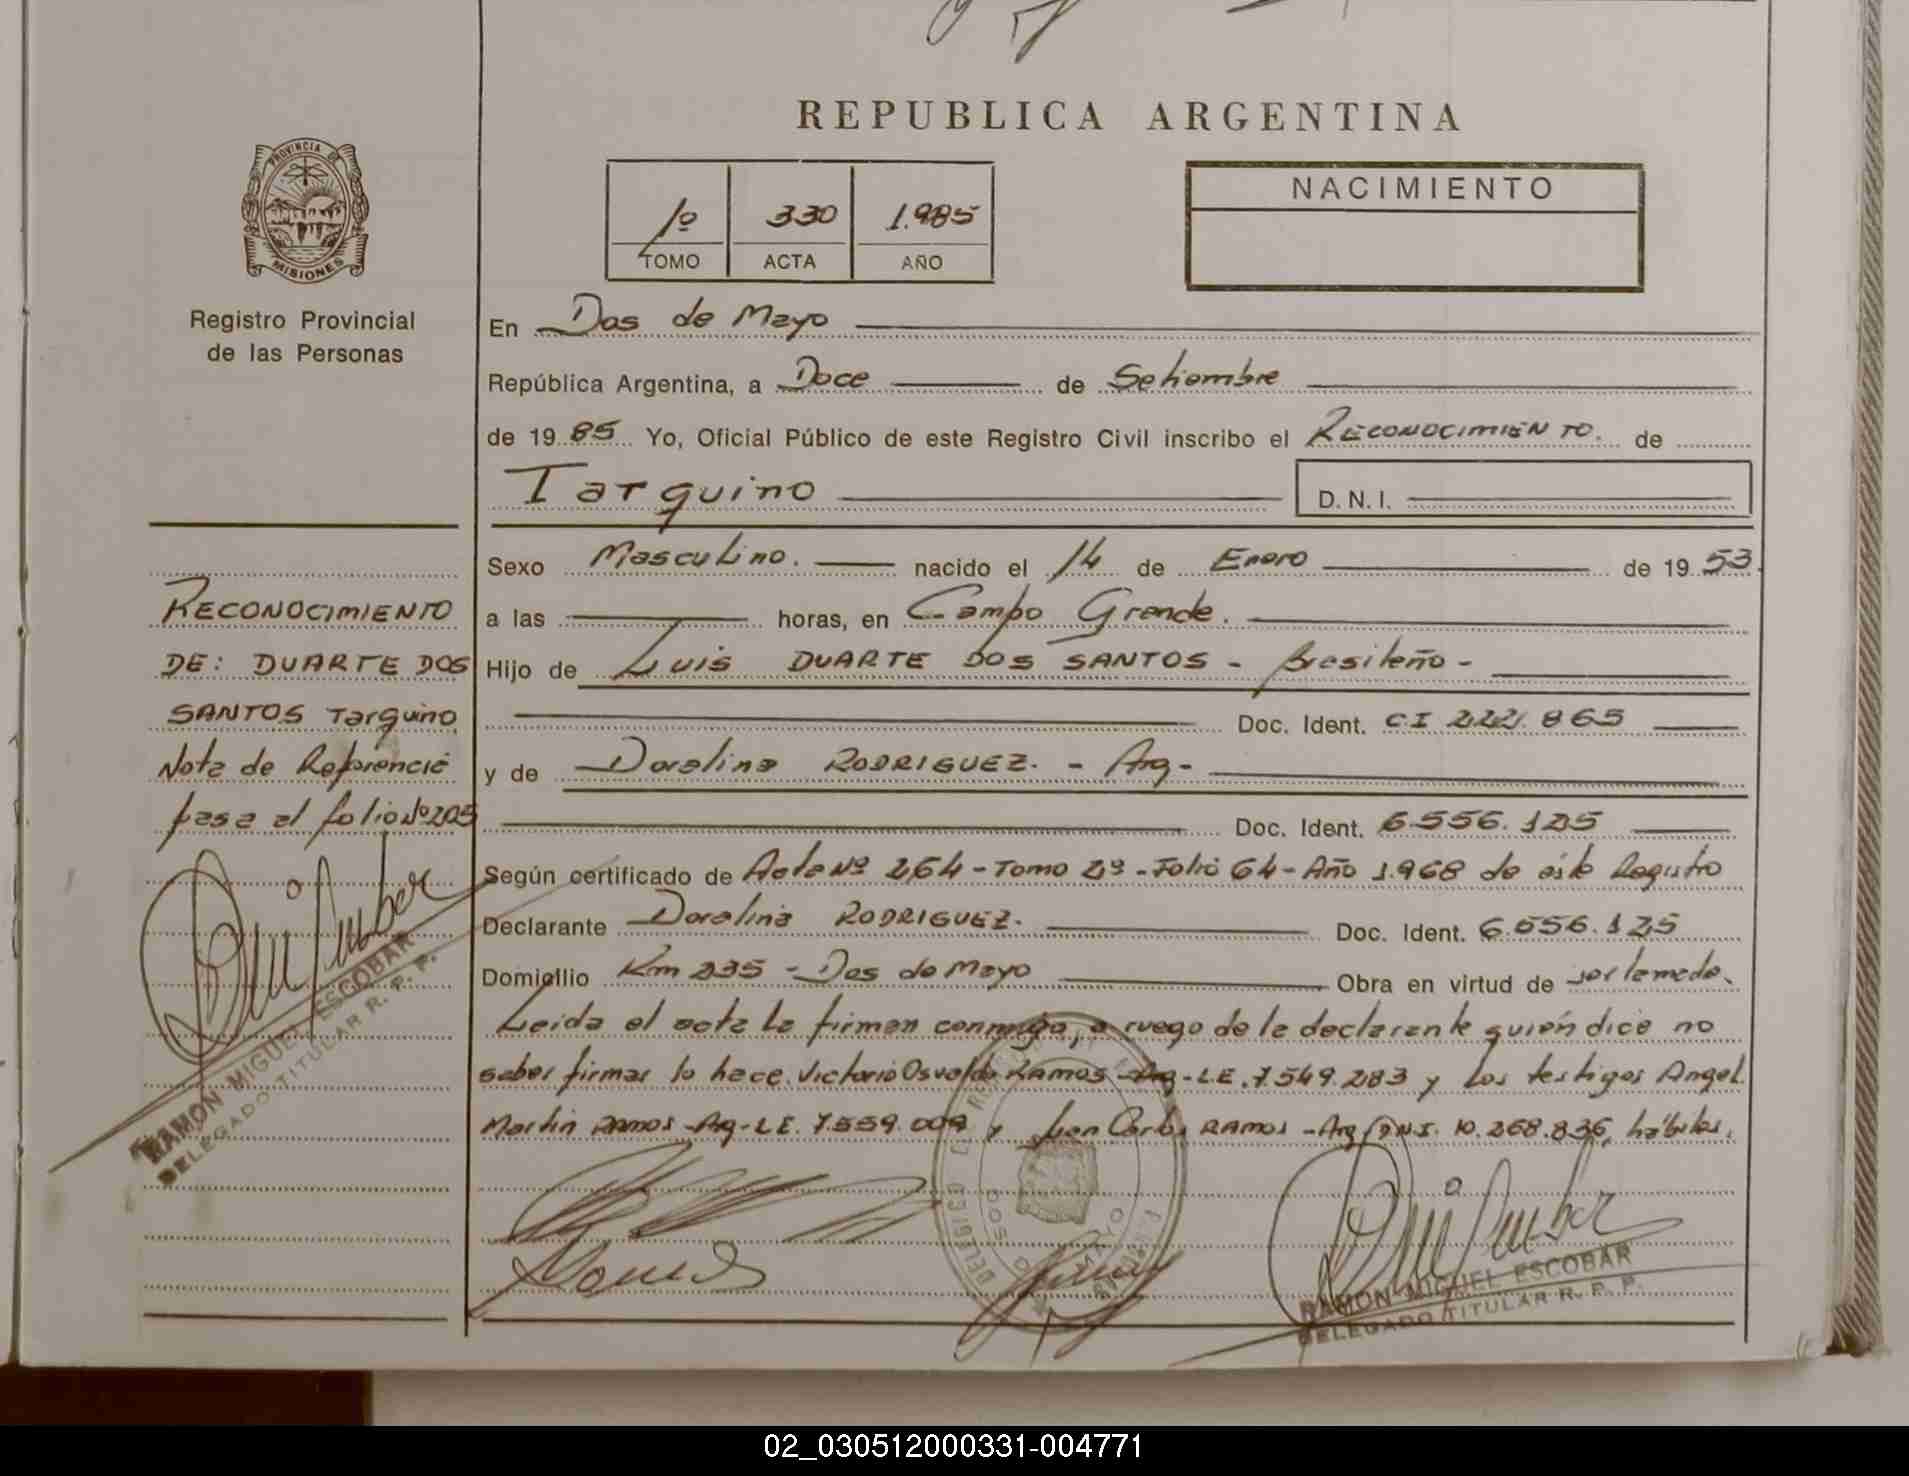 REPUBLICA ARGENTINA
PROVINCIA DE
MISIONES
Registro Provincial
de las Personas
1º 330 1.985
TOMO ACTA AÑO
NACIMIENTO
En Dos de Mayo
República Argentina, a Doce de Setiembre
de 19 85 Yo, Oficial Público de este Registro Civil inscribo el RECONOCIMIENTO. de
Tarquino D.N.I.
Sexo Masculino. nacido el 14 de Enero de 19 53
a las horas, en Campo Grande.
Hijo de Luis DUARTE DOS SANTOS - Brasileño -
Doc. Ident. CI 222.865
y de Doralina RODRIGUEZ. - Arg -
Doc. Ident. 6.556.125
Según certificado de Acta Nº 264 - Tomo 2º - Folio 64 - Año 1.968 de éste Registro
Declarante Doralina RODRIGUEZ. Doc. Ident. 6.556.125
Domicilio Km 235 - Dos de Mayo Obra en virtud de ser la madre.
Leida el acta la firman conmigo, a ruego de la declarante quién dice no
saber firmar lo hace. Victorio Osvaldo RAMOS - Arg - L.E. 7.549.283 y los testigos Angel
Martin RAMOS - Arg - L.E. 7.559.009 y Juan Carlos RAMOS - Arg - D.N.I. 10.268.836, hábiles.
RECONOCIMIENTO
DE: DUARTE DOS
SANTOS Tarquino
Nota de Referencia
pasa al folio Nº 205
RAMON MIGUEL ESCOBAR
DELEGADO TITULAR R. P. P.
RAMON MIGUEL ESCOBAR
DELEGADO TITULAR R. P. P.
02_030512000331-004771